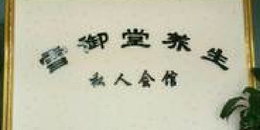 雲御堂养生
私人会馆